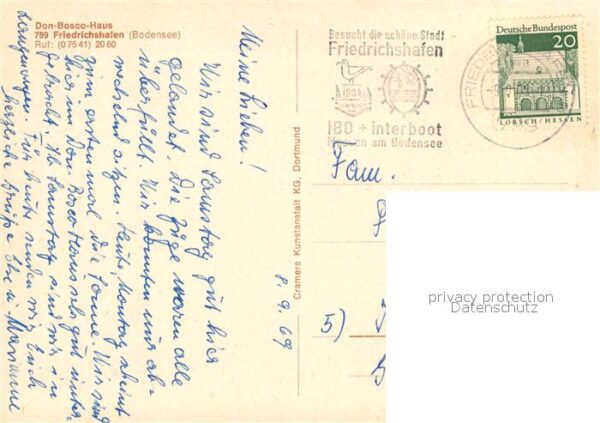 Don-Bosco-Haus
799 Friedrichshafen (Bodensee)
Ruf: (0 75 41) 20 60
Meine Lieben!
Wir sind Samstag gut hier
gelandet. Die Züge waren alle
überfüllt. Wir konnten nur ab-
wechselnd sitzen. Heute, Montag scheint
zum ersten mal die Sonne. Wir sind
hier im Don Bosco Haus sehr gut unter-
gebracht. Ab Samstag sind wir in
Langenargen. Für heute senden wir Euch
herzliche Grüße Eure Marianne
8.9.69
Cramers Kunstanstalt KG, Dortmund
Besucht die schöne Stadt
Friedrichshafen
IBO
IBO + interboot
Messen am Bodensee
FRIED
Deutsche Bundespost
20
LORSCH/HESSEN
Fam.
5)
privacy protection
Datenschutz